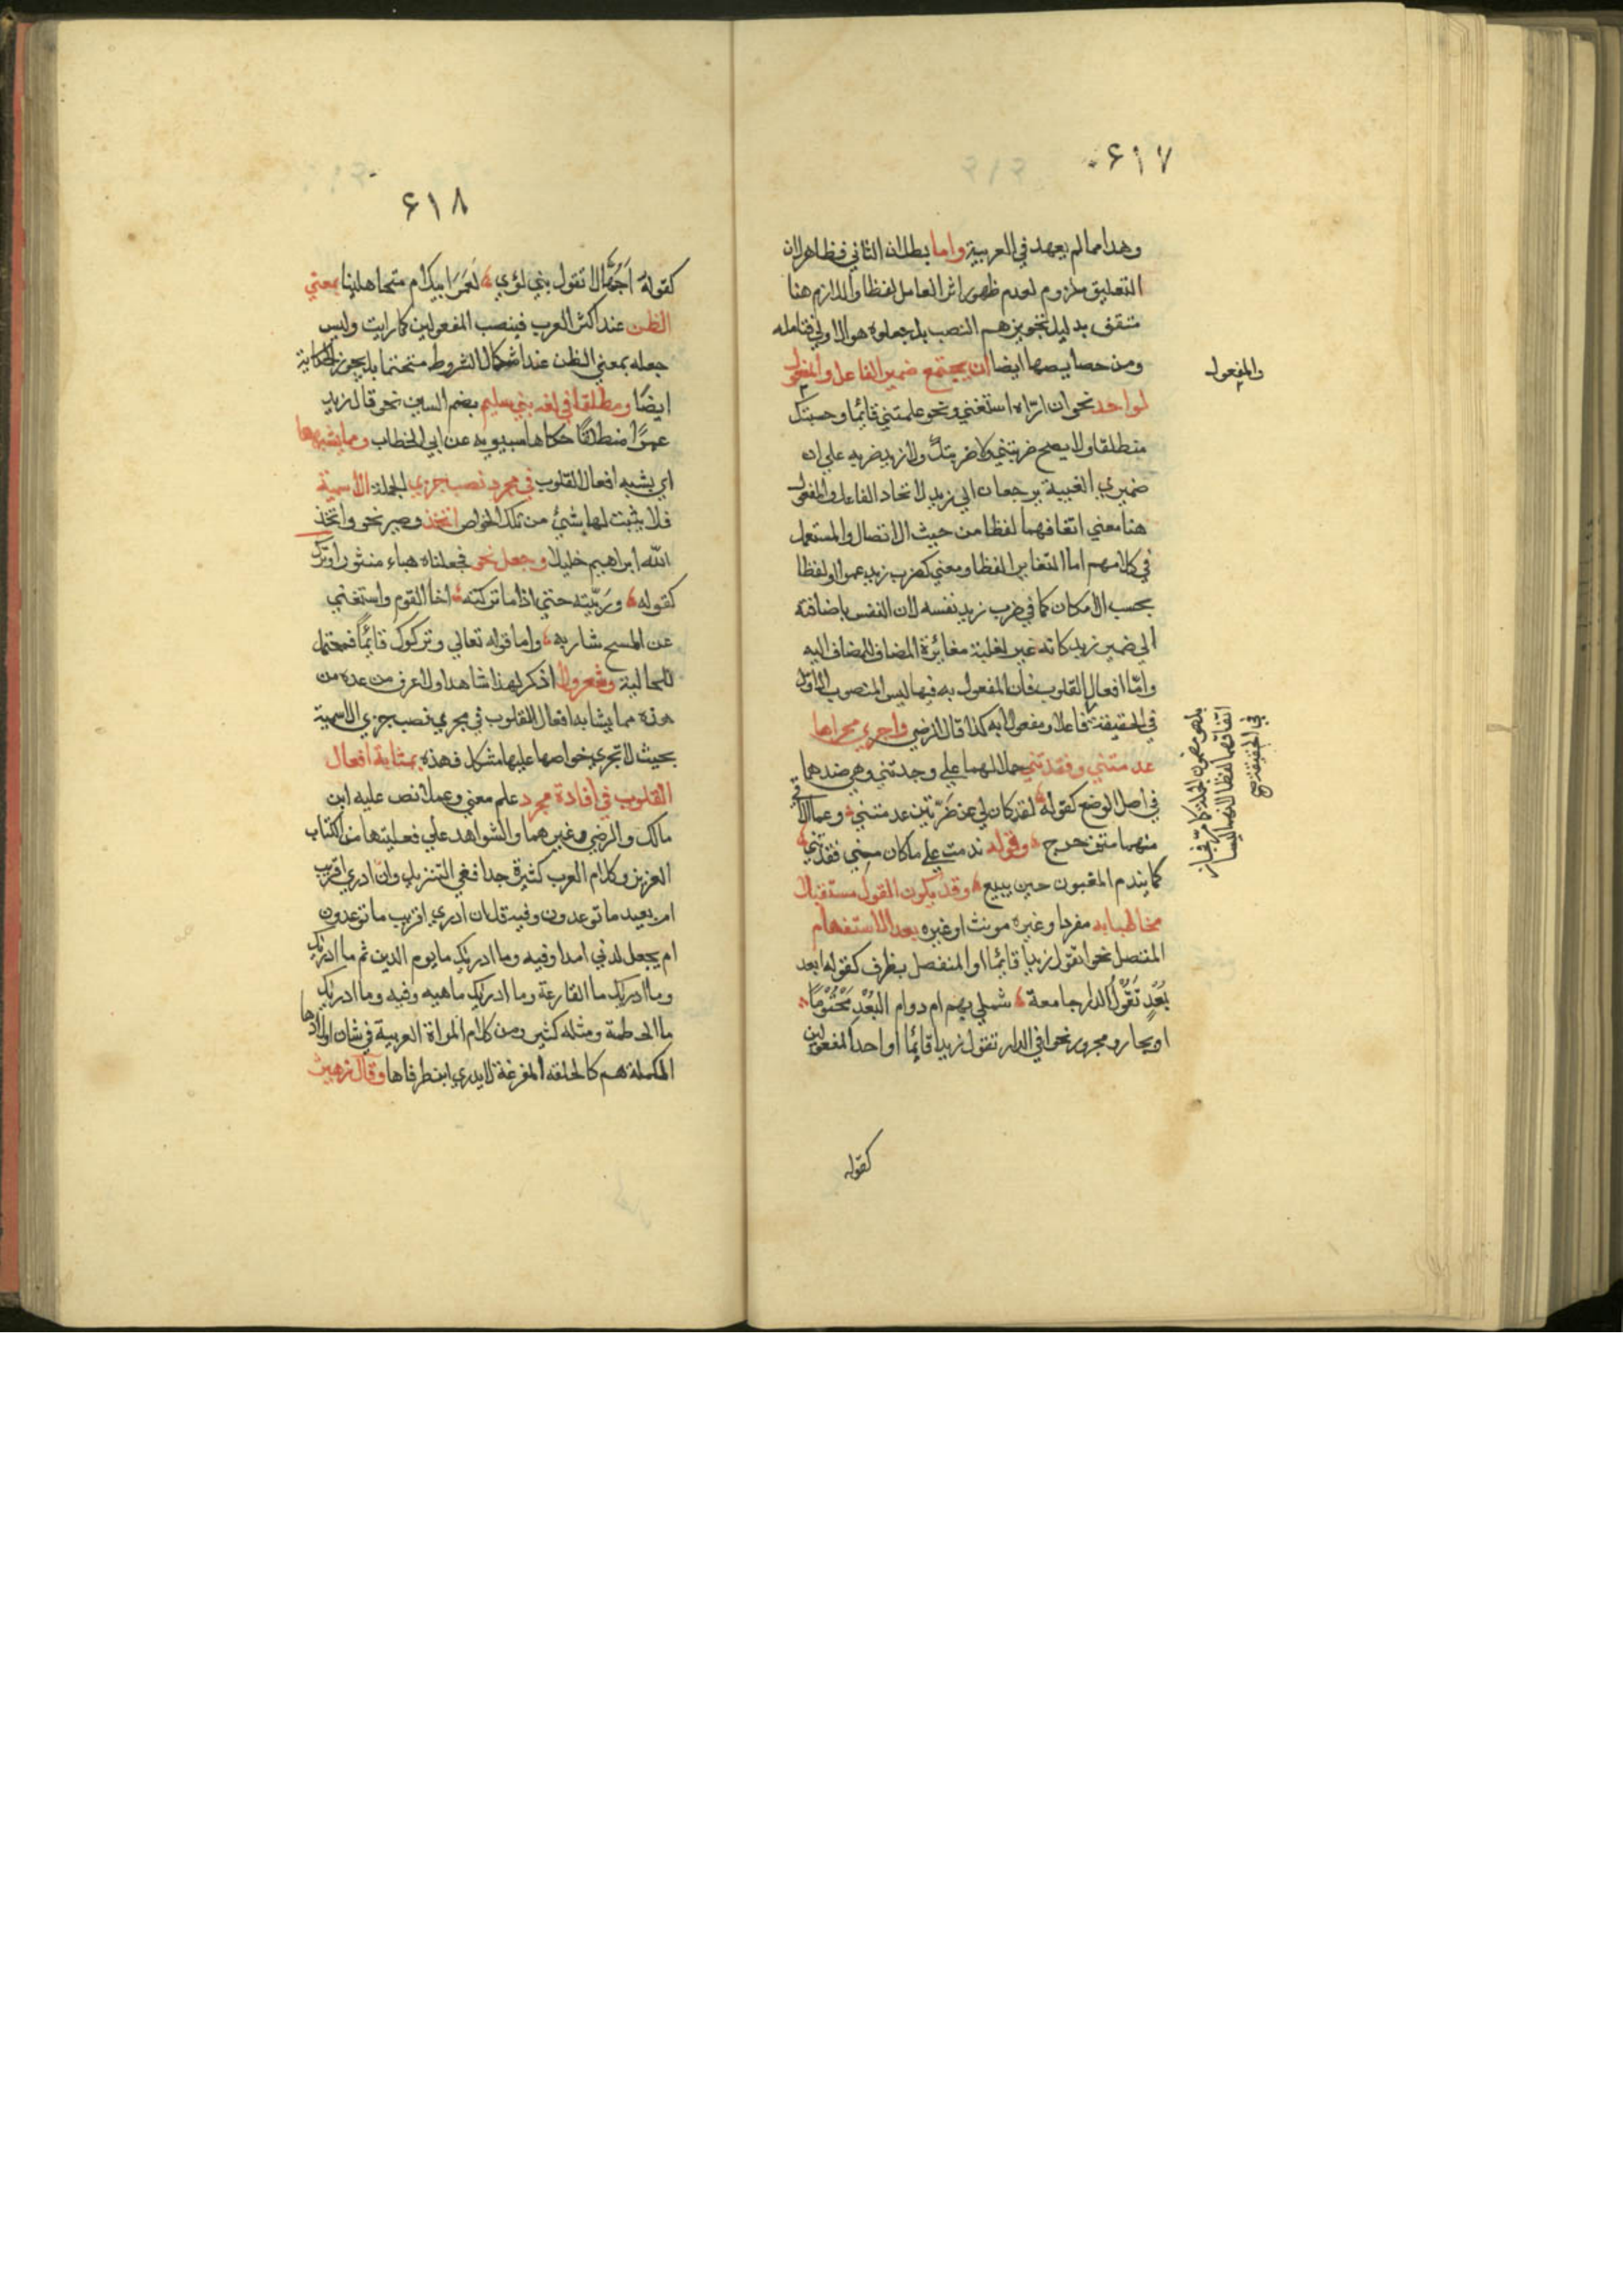 ٦١٧
وهذا مما لم يعهد في العربية واما بطلان الثاني فظاهر لان
التعليق ملزوم لعدم ظهور اثر العامل لفظا واللازم هنا
منتف بدليل تجويزهم النصب بل جعلوه هو الاولي فتامله
ومن خصايصها ايضا ان يجتمع ضمير الفاعل والمفعول
لواحد نحو ان رّاه استغني ونحو علمتني قائما وحسبتك
منطلقا ولا يصح ضربتني ولا ضربتك ولا زيد ضربه علي ان
ضميري الغيبة يرجعان الي زيد لاتحاد الفاعل والمفعول
هنا معني اتفاقهما لفظا من حيث الاتصال والمستعمل
في كلامهم اما التغاير لفظا ومعني كضرب زيد عمرا او لفظا
بحسب الامكان كما في ضرب زيد نفسه لان النفس باضافته
الي ضمير زيد كانه غير لغلبة مغائرة المضاف للمضاف اليه
واما افعال القلوب فان المفعول به فيها ليس المنصوب الاول
في الحقيقة فاعلا ومفعولا به كذا قال الرضي واجري مجراها
عدمتني وفقدتني حملا لهما علي وجدتني وهي ضدهما
في اصل الوضع كقوله لقد كان لي عن ضَرّتين عدمتني وعما الاقي
منهما متزحزح وقوله ندمت علي ما كان مني فقدتني
كما يندم المغبون حين يبيع وقد يكون القول مستقبلا
مخاطبا به مفردا وغيره مونث او غيره بعد الاستفهام
المتصل نحو اتقول زيدا قائما او المنفصل بظرف كقوله ابعد
بُعْدٍ تَقُوْلُ الدار جامعة شملي بهم ام دوام البُعْدِ مَحْتُوْمًا
او بجار ومجرور نحو افي الدار تقول زيدا قائما او احد المفعولين
كقوله
والمفعول
بل هو مضمون الجملة كما مر فجاز
اتفاقهما لفظا لانهما ليسا
في الحقيقة صح
٦١٨
كقوله اَجُهَّالا تقول بني لؤي لَعَمْرَ ابيك ام متجاهلينا بمعني
الظن عند اكثر العرب فينصب المفعولين كما رايت وليس
جعله بمعني الظن عند استكمال الشروط متحتما بل يجوز الحكاية
ايضا ومطلقا في لغه بني سليم بضم السين نحو قال زيد
عمرًا منطلقًا حكاها سيبويه عن ابي الخطاب ومما يشبهها
اي يشبه افعال القلوب في مجرد نصب جزي الجملة الاسمية
فلا يثبت لها شيئ من تلك الخواص اتخذ وصير نحو واتخذ
الله ابراهيم خليلا وجعل نحو فجعلناه هباء منثورا وترك
كقوله ورَبَّيته حتي اذا ما تركته اخا القوم واستغني
عن المسح شاربه واما قوله تعالي وتركوك قائما فمحتمل
للحالية وشعر ولا اذكر لهذا شاهدا ولا اعرف من عده من
هذه مما يشابه افعال القلوب في مجري نصب جزي الاسمية
بحيث لا تجري خواصها عليها مشكل فهذه بمثابة افعال
القلوب في افادة مجرد علم معني وعملا نص عليه ابن
مالك والرضي وغيرهما والشواهد علي فعليتها من الكتاب
العزيز وكلام العرب كثيرة جدا ففي التنزيل وان ادري اقريب
ام بعيد ما توعدون وفيه قل ان ادري اقريب ما توعدون
ام يجعل له ربي امدا وفيه وما ادريك ما يوم الدين ثم ما ادريك
وما ادريك ما القارعة وما ادريك ماهيه وفيه وما ادريك
ما الحطمة ومثله كثير ومن كلام المراة العربية في شان اولادها
المكملة هم كالحلقه المفرغة لا يدري اين طرفاها وقال زهير